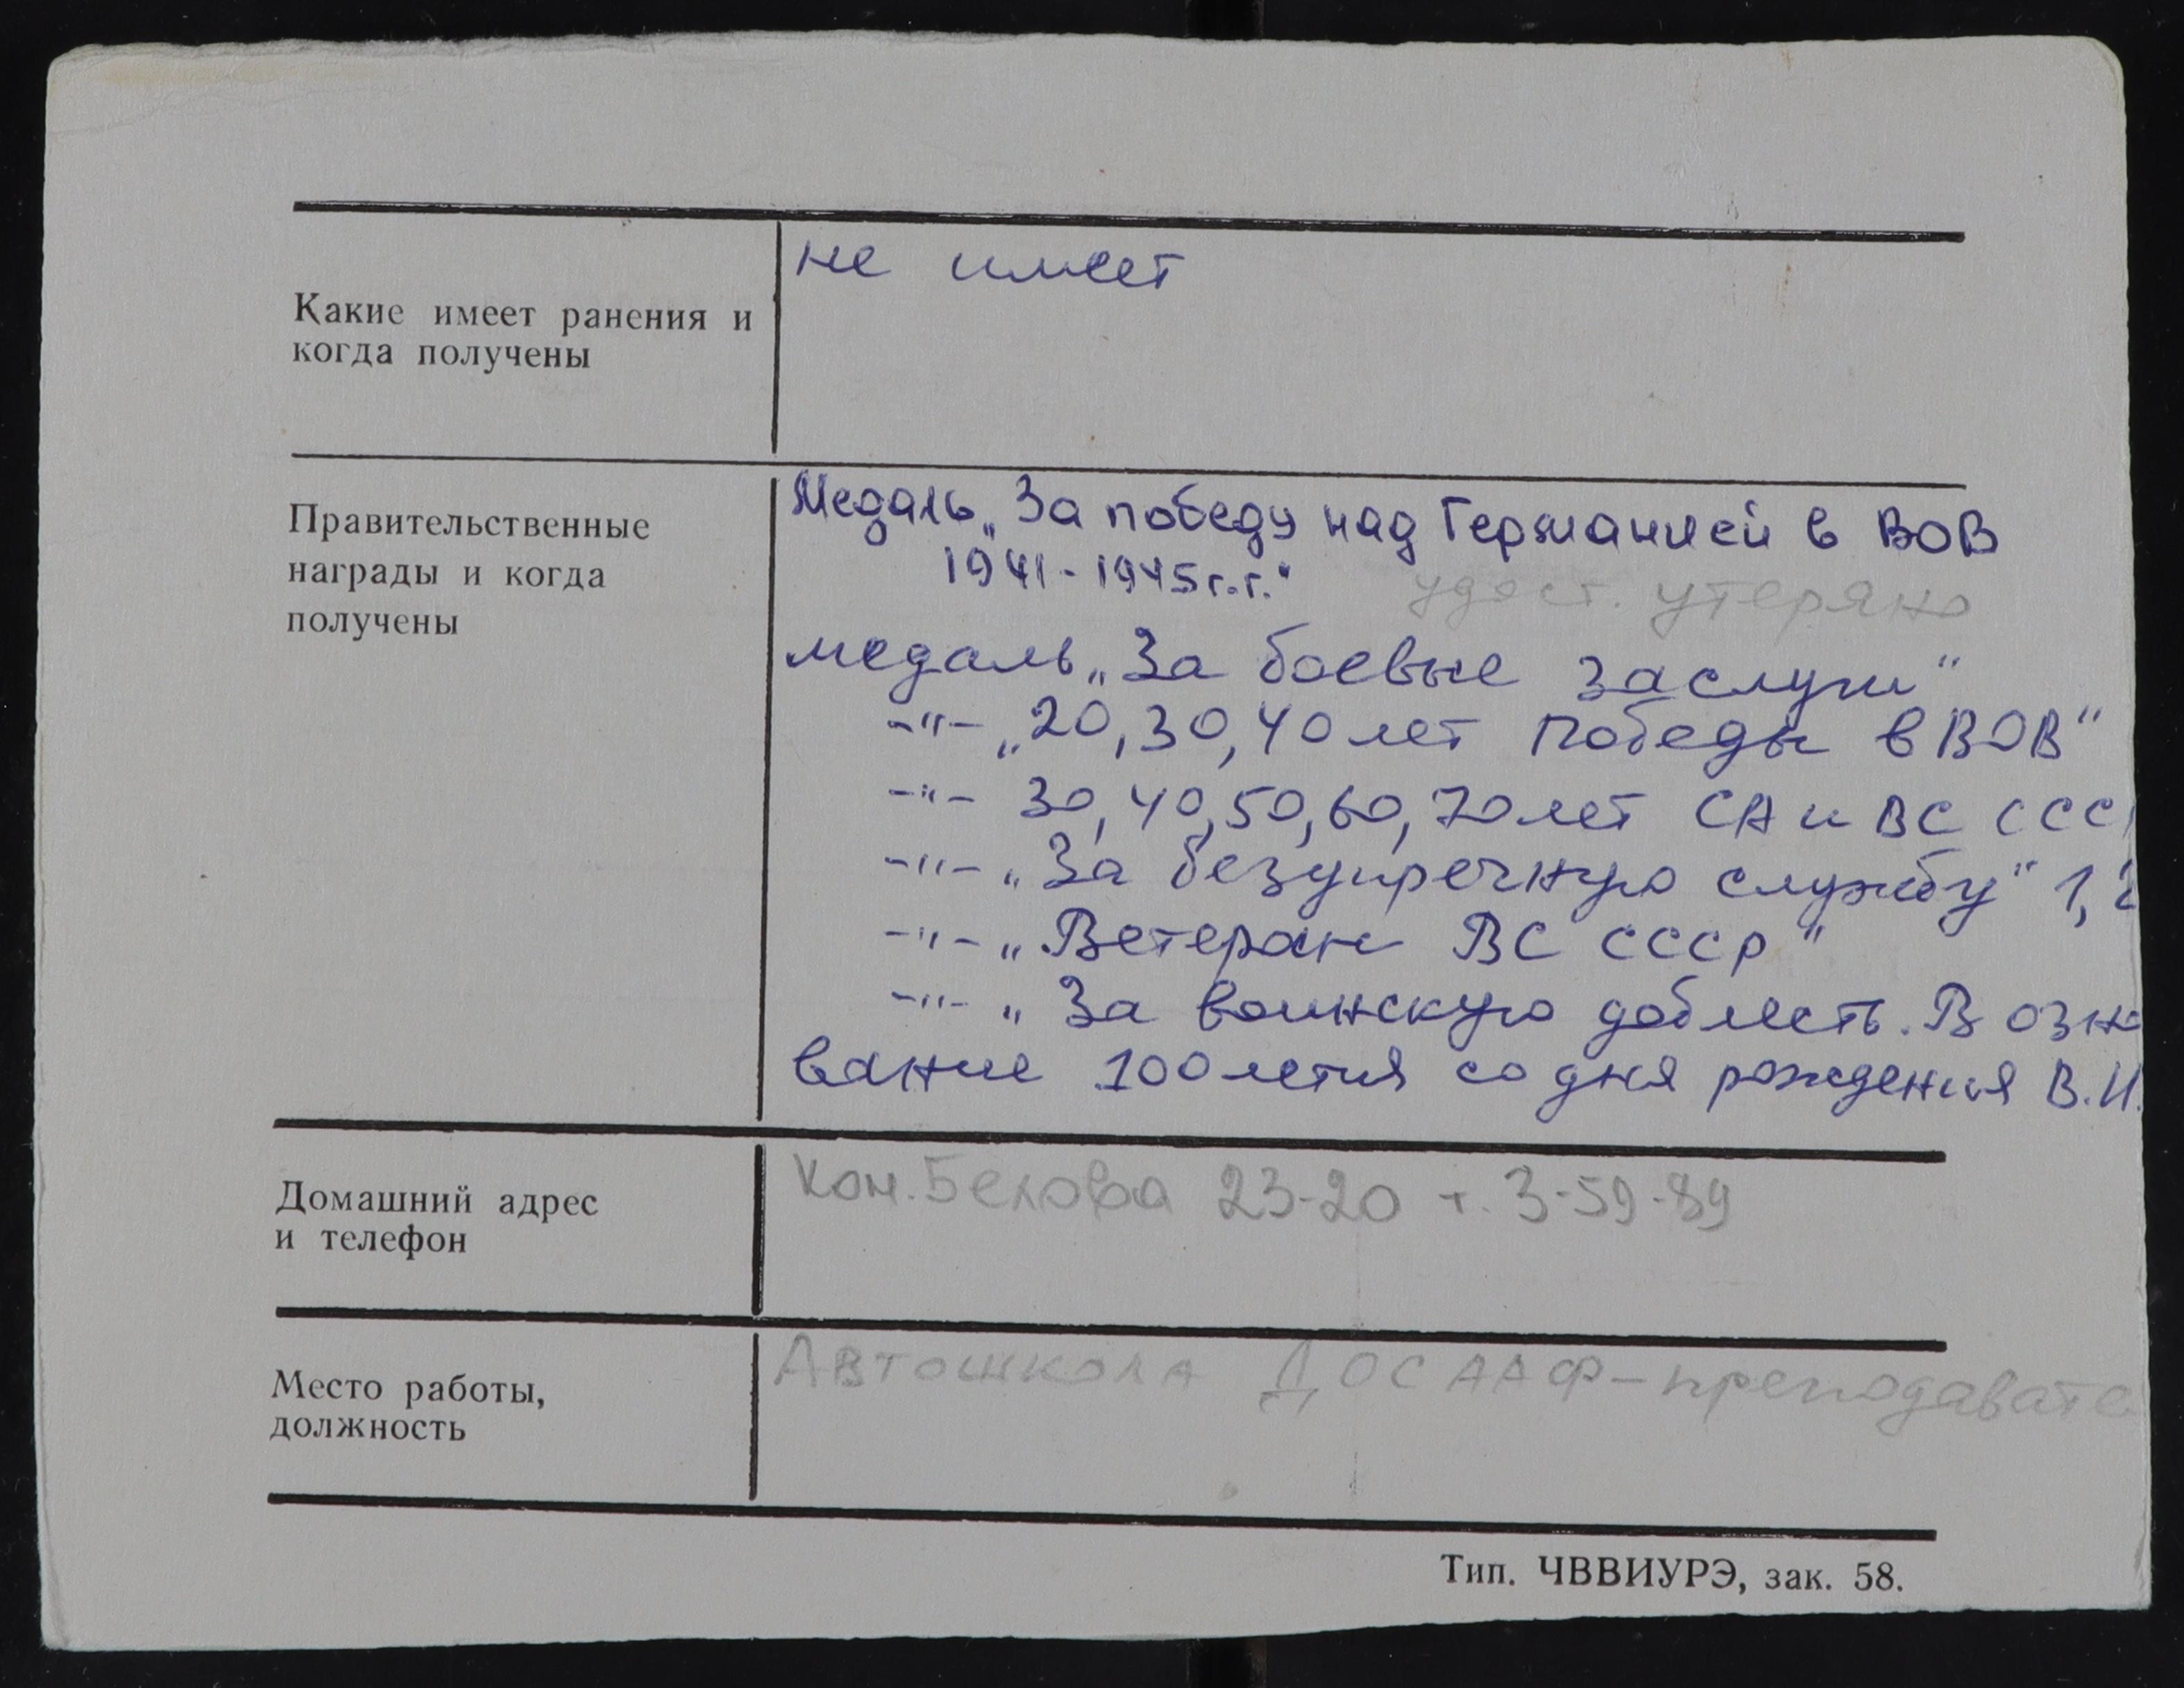 не имеет
Какие имеет ранения и
когда получены
Правительственные
награды и когда
получены
Медаль „За победу над Германией в ВОВ
1941-1945г.г."
удост. утеряно
медаль „За боевые заслуги"
-"- „20,30,40 лет победы в ВОВ"
-"- 30,40,50,60,70 лет СА и ВС ССС
-"- „За безупречную службу" 1,2
-"- „Ветеран ВС СССР"
-"- „За воинскую доблесть. В озн
вание 100летия со дня рождения В.И.
Домашний адрес
и телефон
Ком. Белова 23-20 т. 3-59-89
Место работы,
должность
Автошкола ДОСААФ-преподавате
Тип. ЧВВИУРЭ, зак. 58.